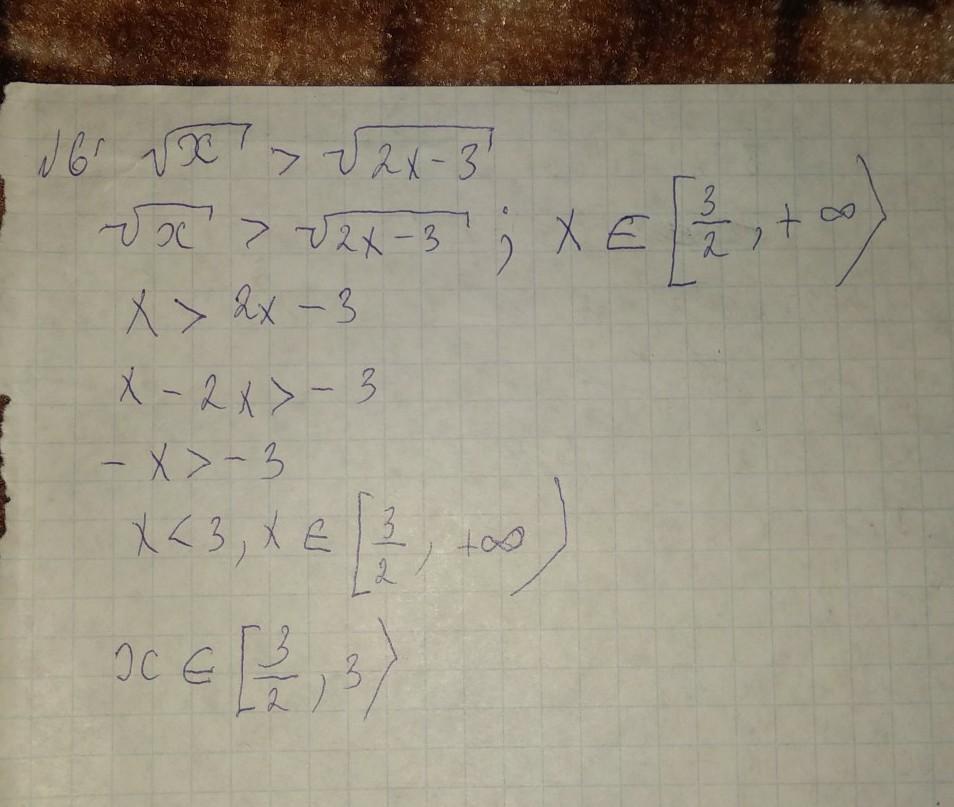 №6 √x > √2x-3
√x > √2x-3 ; x ∈ [3/2, +∞⟩
x > 2x - 3
x - 2x > - 3
- x > - 3
x < 3, x ∈ [3/2, +∞)
x ∈ [3/2, 3⟩